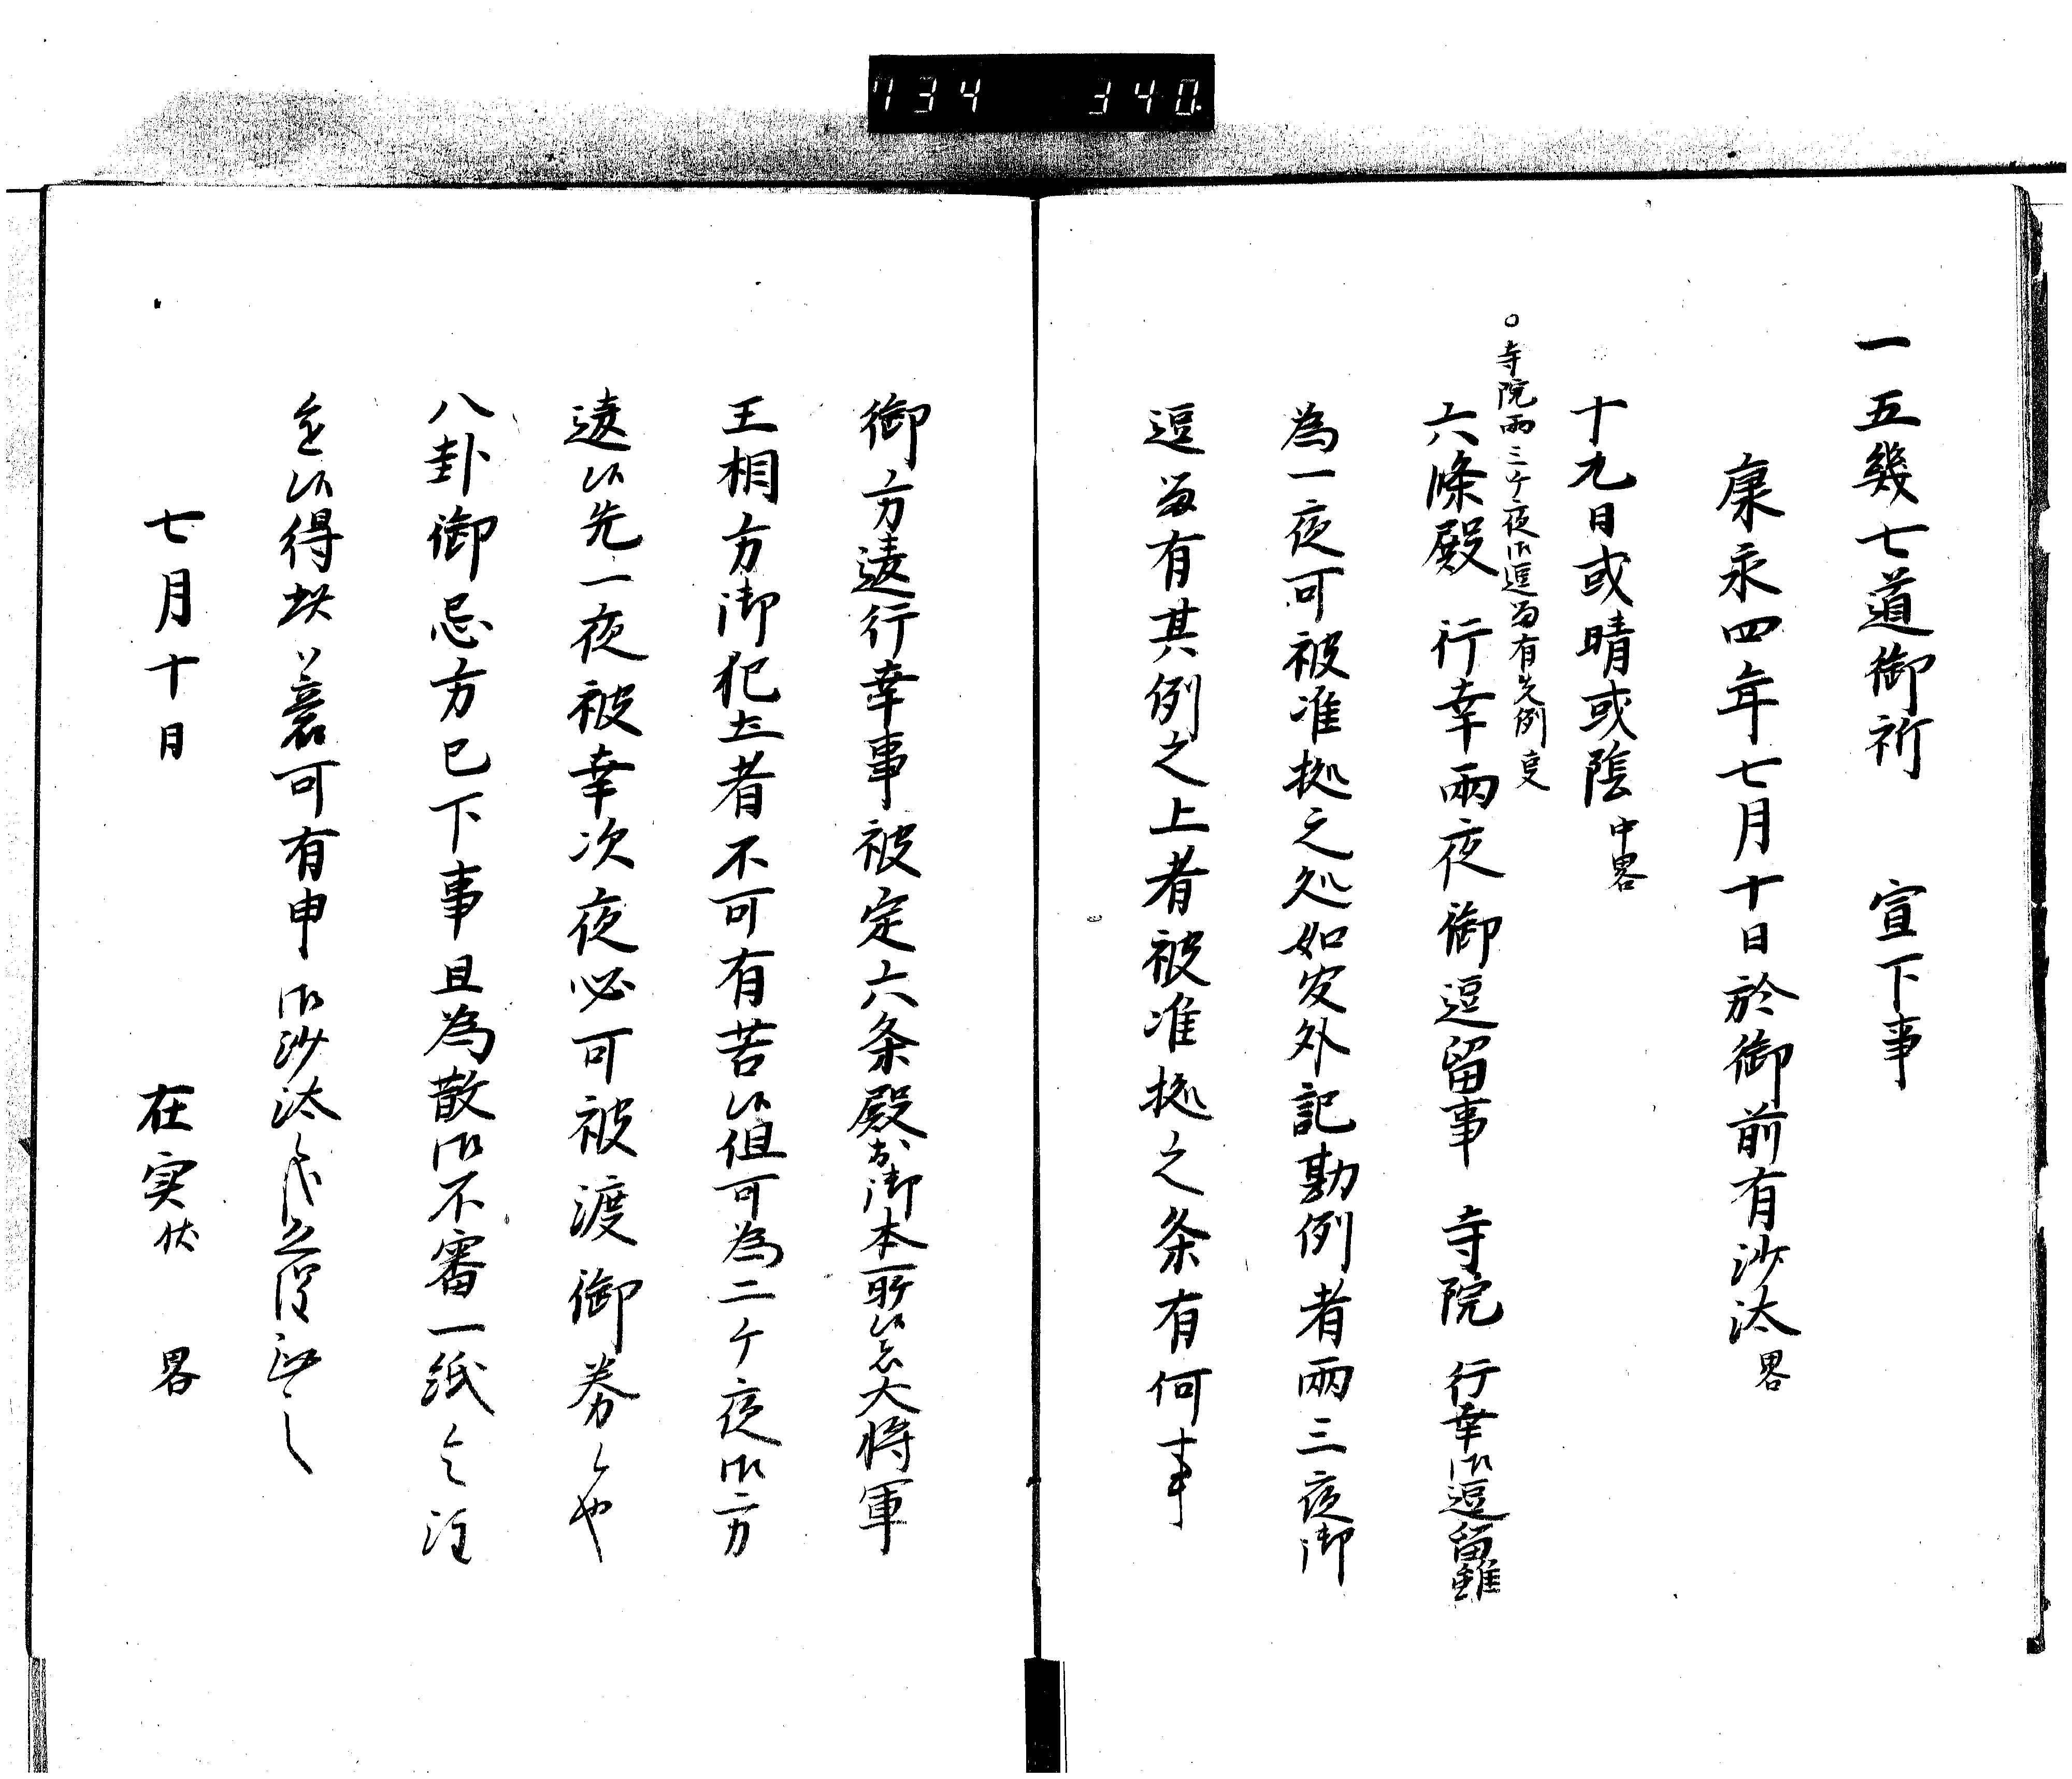 734 340
一五幾七道御祈 宣下事
康永四年七月十日於御前有沙汰畧
十九日或晴或陰中畧
○寺院兩三ケ夜御逗留有先例事
六條殿 行幸兩夜御逗留事 寺院 行幸御逗留雖
為一夜可被准拠之処如安外記勘例者兩三夜御
逗留有其例之上者被准拠之条有何事
御方違行幸事被定六条殿於御本所候者大将軍
王相方御犯土者不可有苦候但可為二ケ夜御方
違候先一夜被幸次夜必可被渡御券候也
八卦御忌方已下事且為散御不審一紙令注
進候得其意可有申御沙汰候
七月十日 在実状 畧